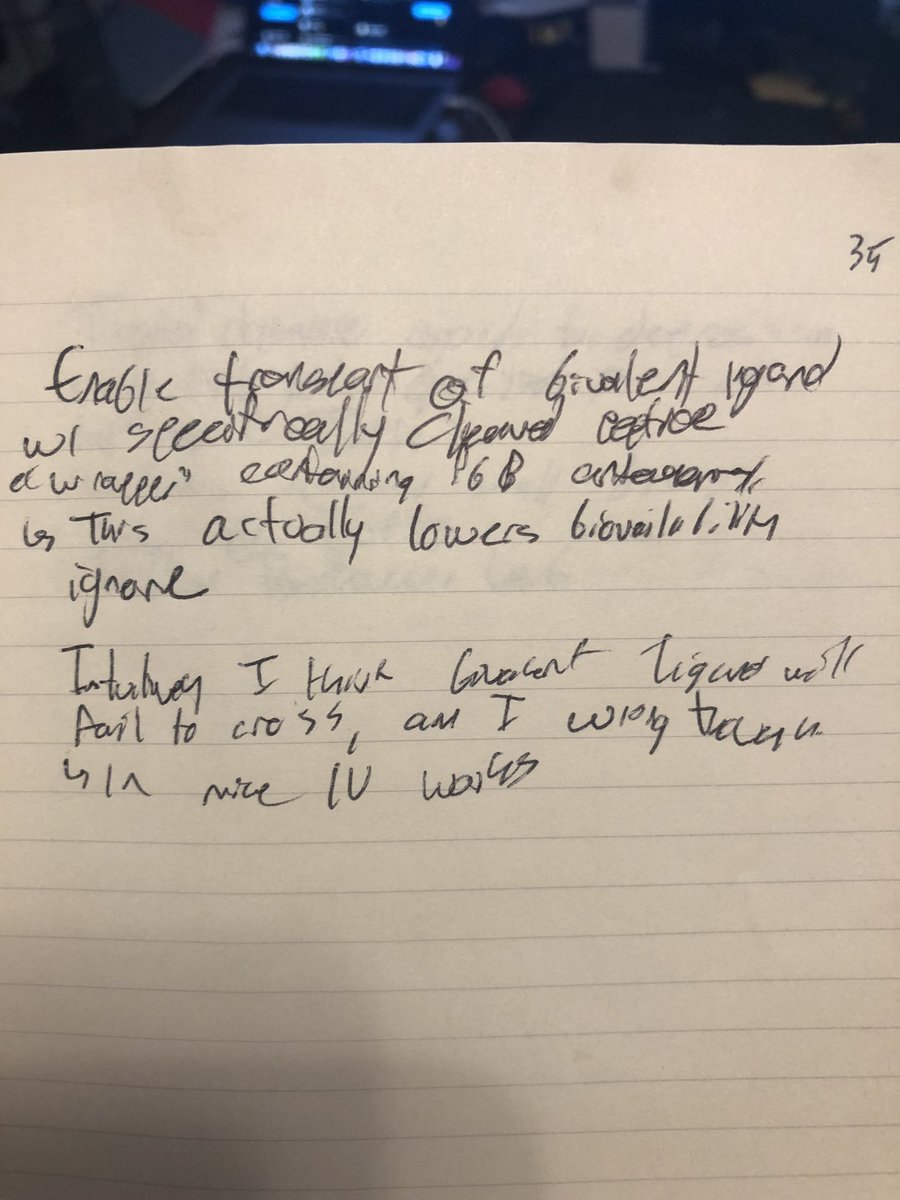 35
Enable transport of bivalent ligand
w/ specifically cleaved peptide
"wrapper" containing
↳ This actually lowers bioavailability
ignore
Intuitively I think bivalent ligand will
fail to cross, am I wrong though
↳ In mice IV works